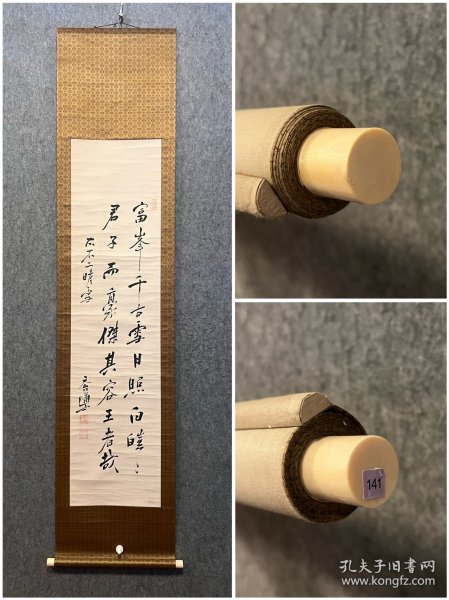 富峯千古雪日照白皚〻
君子而豪傑其容王者哉
右不二晴雪
141
孔夫子旧书网
www.kongfz.com